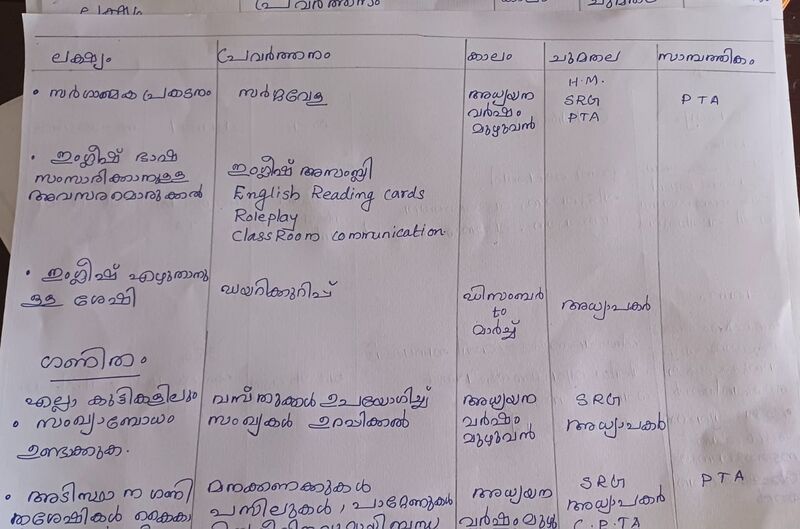 ലക്ഷ്യം പ്രവർത്തനം കാലം ചുമതല സാമ്പത്തികം
• സർഗാത്മക പ്രകടനം സർഗ്ഗവേള അധ്യയന വർഷം മുഴുവൻ H.M. SRG PTA PTA
• ഇംഗ്ലീഷ് ഭാഷ
സംസാരിക്കാനുള്ള
അവസരമൊരുക്കൽ
ഇംഗ്ലീഷ് അസംബ്ലി
English Reading cards
Roleplay
ClassRoom communication
• ഇംഗ്ലീഷ് എഴുതാനു
ള്ള ശേഷി
ഡയറിക്കുറിപ്പ്
ഡിസംബർ
to
മാർച്ച്
അധ്യാപകർ
ഗണിതം
എല്ലാ കുട്ടികളിലും
• സംഖ്യാബോധം
ഉണ്ടാക്കുക.
വസ്തുക്കൾ ഉപയോഗിച്ച്
സംഖ്യകൾ ഉറപ്പിക്കൽ
അധ്യയന
വർഷം
മുഴുവൻ
SRG
അധ്യാപകർ
• അടിസ്ഥാന ഗണി
തശേഷികൾ കൈവ
മനക്കണക്കുകൾ
പസിലുകൾ, പാറ്റേണുകൾ
അധ്യയന
വർഷം മുഴു
SRG
അധ്യാപകർ
C.P.TA
PTA